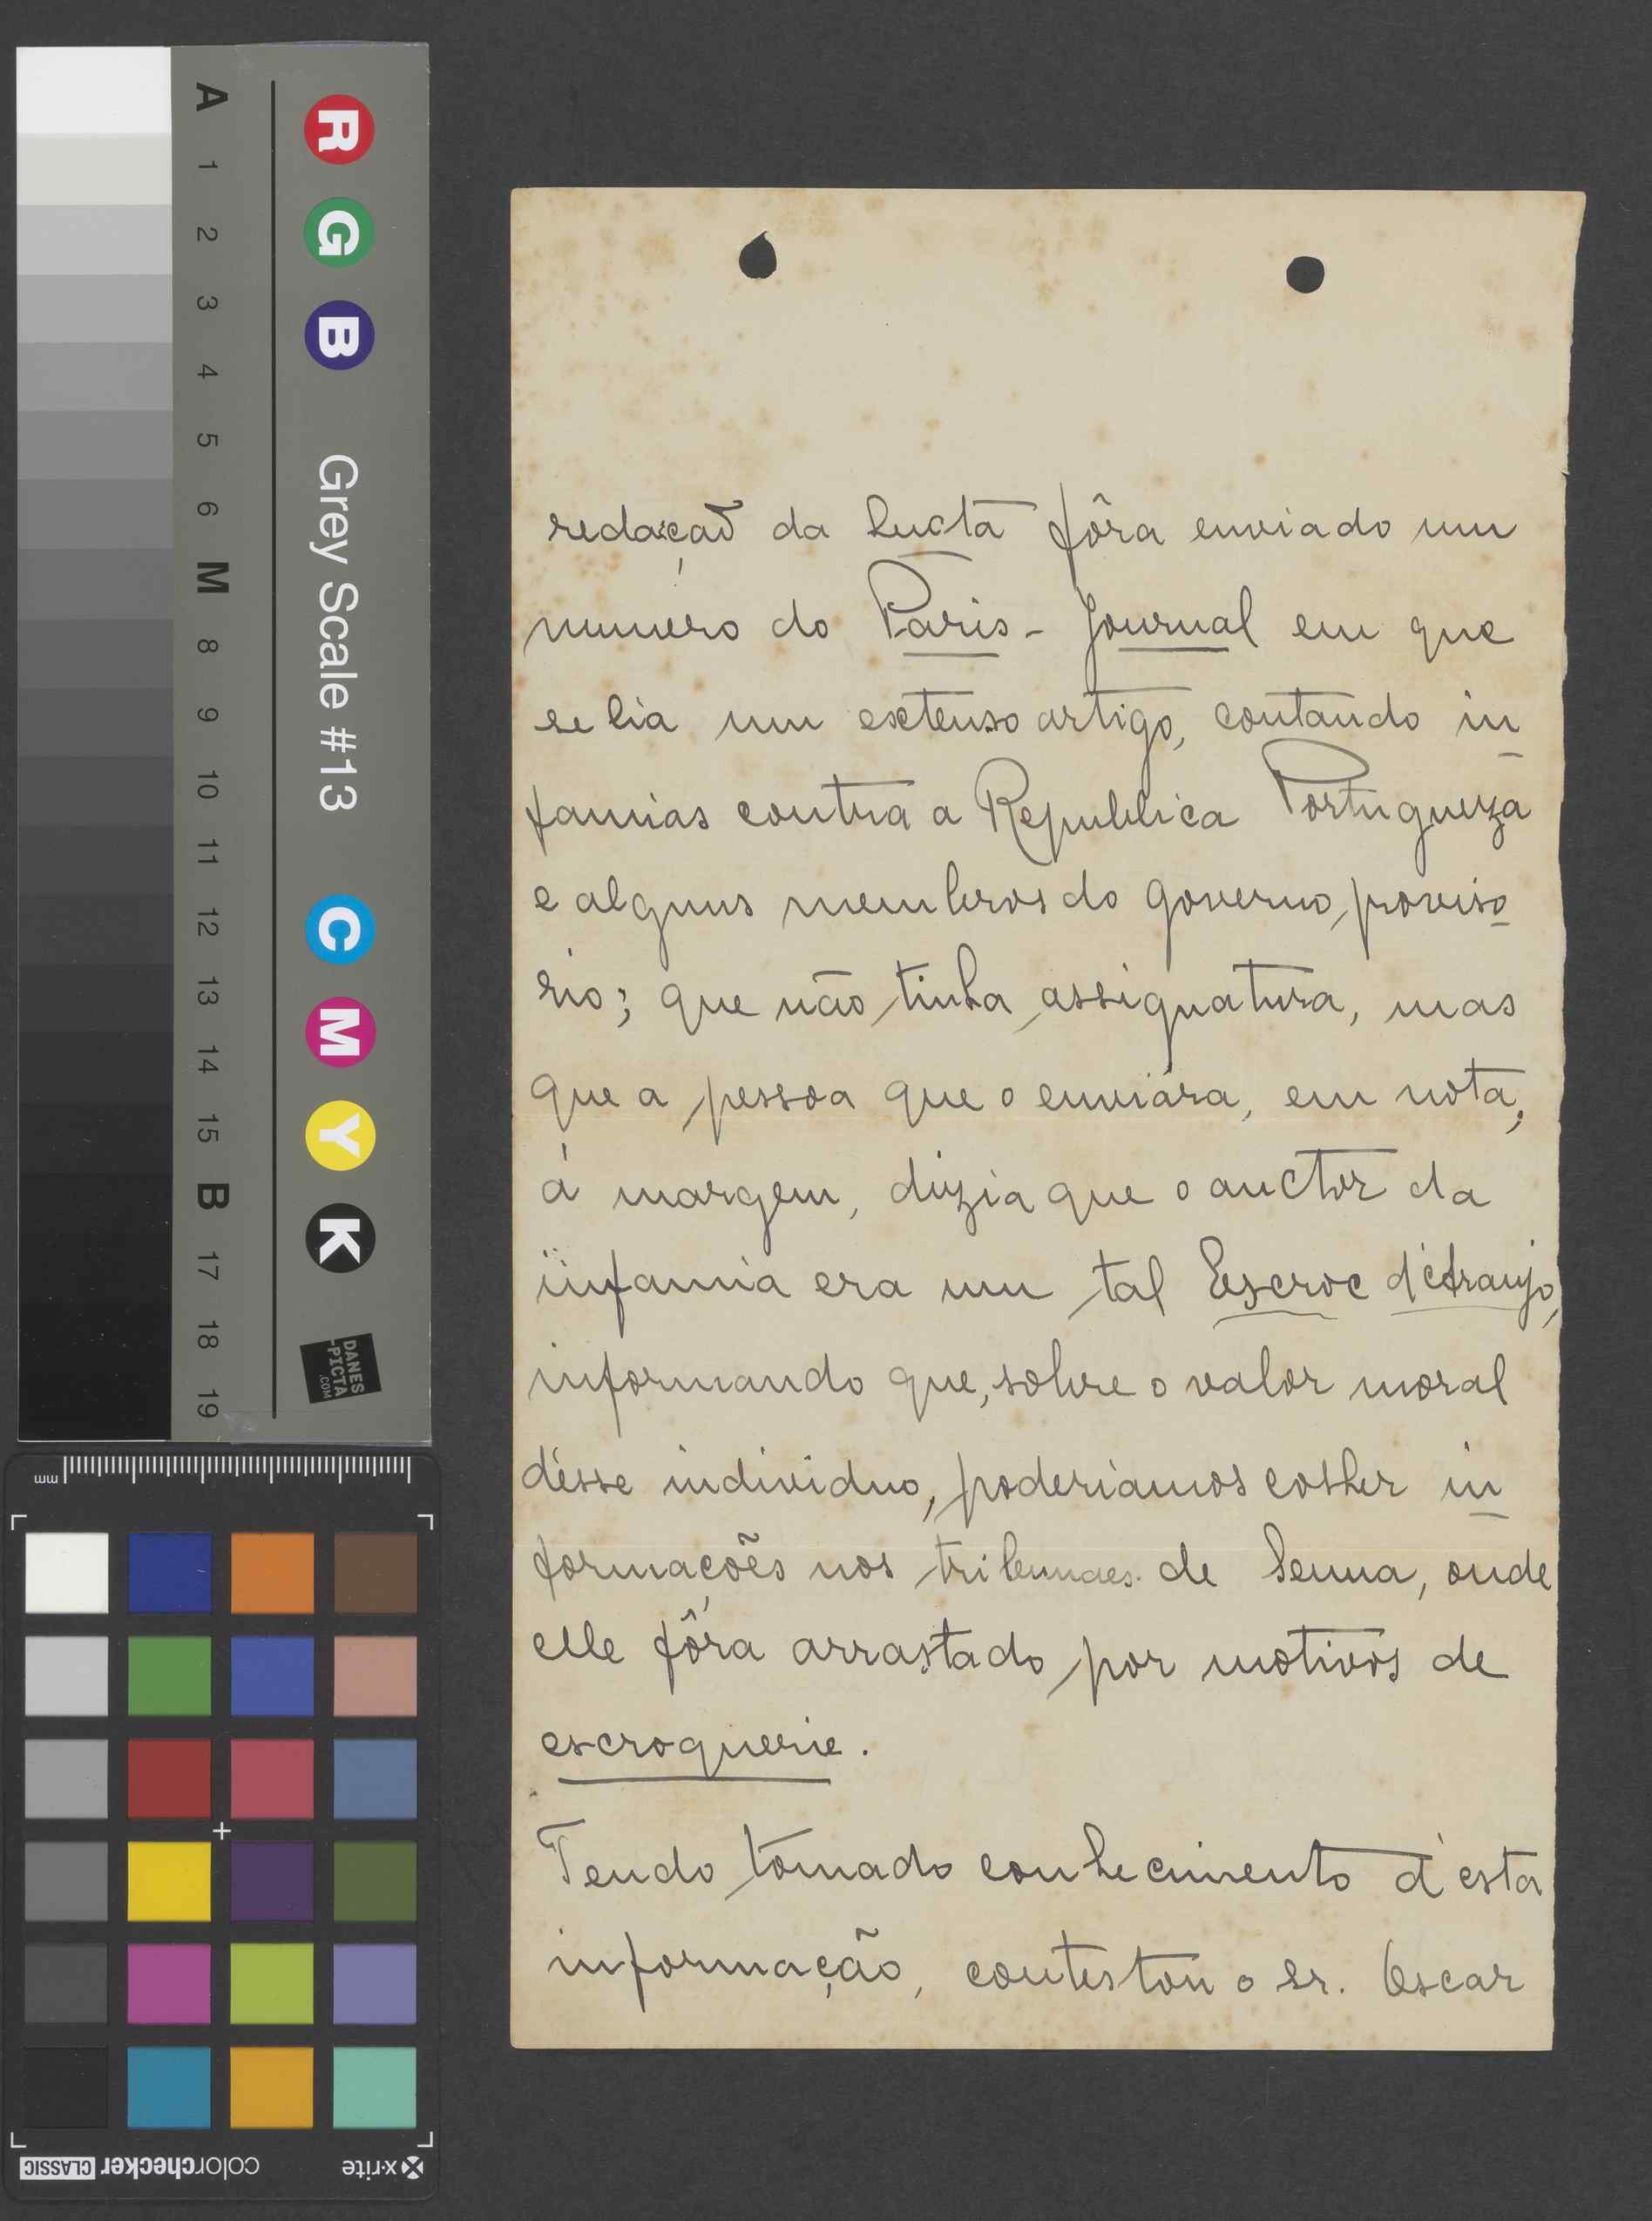 A
1
2
3
4
5
6
M
8
9
10
11
12
13
14
15
B
17
18
19
R
G
B
Grey Scale #13
C
M
Y
K
DANES
-PICTA
.COM
mm
colorchecker CLASSIC
x·rite
redacção da Lucta fôra enviado um
numero do Paris - Journal em que
se lia um extenso artigo, contando in
famias contra a Republica Portugueza
e alguns membros do governo proviso
rio; que não tinha assignatura, mas
que a pessoa que o enviára, em nota,
á margem, dizia que o auctor da
infamia era um tal Escroc d'Araujo,
informando que, sobre o valor moral
désse individuo, poderiamos colher in
formações nos tribunaes de Senna, onde
elle fôra arrastado por motivos de
escroquerie.
Tendo tomado conhecimento d'esta
informação, contestou o sr. Oscar